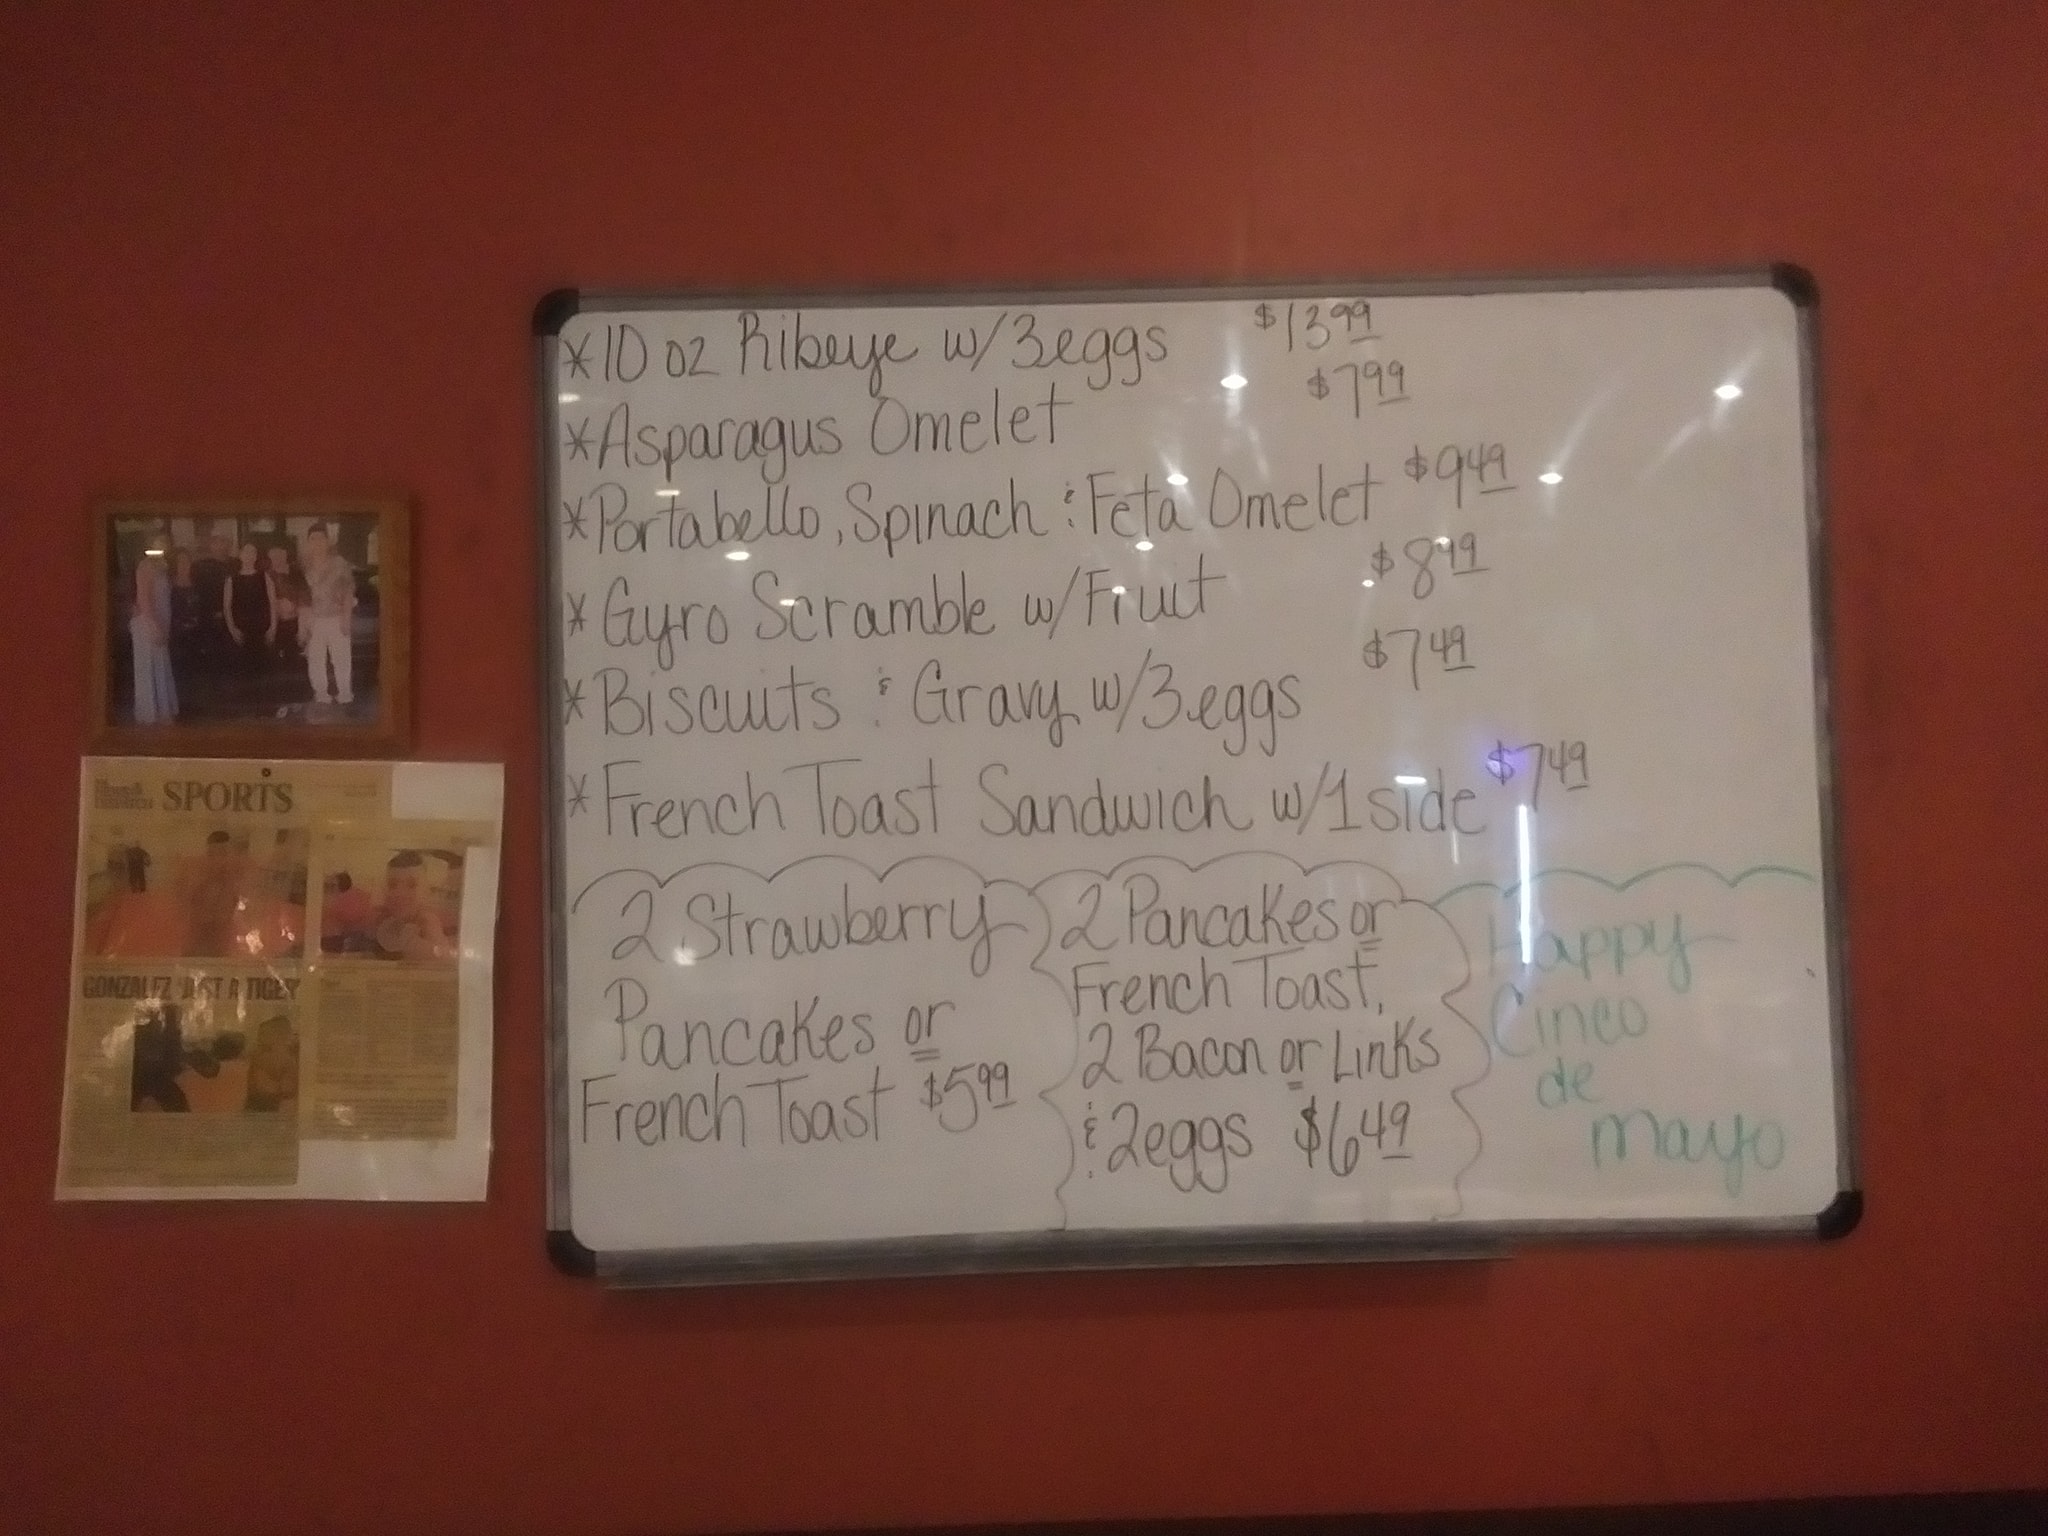 *10 oz Ribeye w/3eggs $13.99
*Asparagus Omelet $7.99
*Portabello, Spinach & Feta Omelet $9.49
*Gyro Scramble w/Fruit $8.99
*Biscuits & Gravy w/3eggs $7.49
*French Toast Sandwich w/1side $7.49
2 Strawberry
Pancakes or
French Toast $5.99
2 Pancakes or
French Toast,
2 Bacon or Links
& 2eggs $6.49
Happy
Cinco
de
mayo
SPORTS
GONZALEZ JUST A TIGER